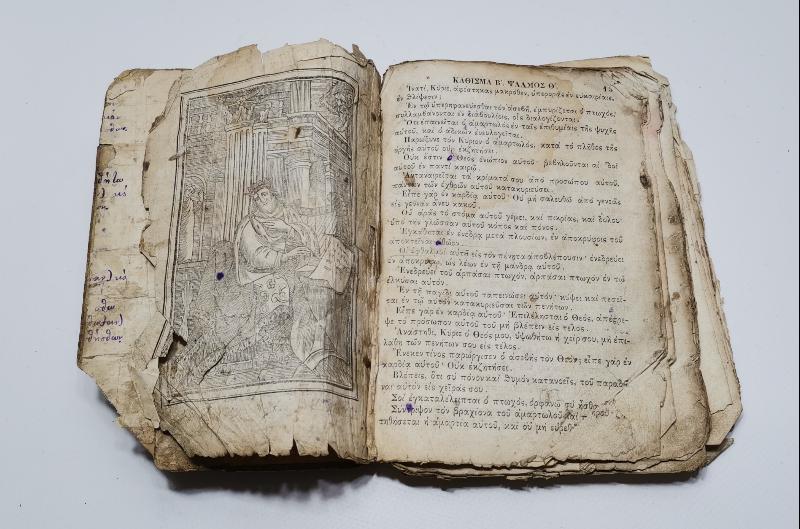 ΚΑΘΙΣΜΑ Β΄. ΨΑΛΜΟΣ Θ΄. 15
Ἱνατί, Κύριε, ἀφέστηκας μακρόθεν, ὑπερορᾷς ἐν εὐκαιρίαις,
ἐν θλίψεσιν;
Ἐν τῷ ὑπερηφανεύεσθαι τὸν ἀσεβῆ, ἐμπυρίζεται ὁ πτωχός·
συλλαμβάνονται ἐν διαβουλίοις, οἷς διαλογίζονται.
Ὅτι ἐπαινεῖται ὁ ἁμαρτωλὸς ἐν ταῖς ἐπιθυμίαις τῆς ψυχῆς
αὐτοῦ, καὶ ὁ ἀδικῶν ἐνευλογεῖται.
Παρώξυνε τὸν Κύριον ὁ ἁμαρτωλός, κατὰ τὸ πλῆθος τῆς
ὀργῆς αὐτοῦ οὐκ ἐκζητήσει.
Οὐκ ἔστιν ὁ Θεὸς ἐνώπιον αὐτοῦ· βεβηλοῦνται αἱ ὁδοὶ
αὐτοῦ ἐν παντὶ καιρῷ.
Ἀνταναιρεῖται τὰ κρίματά σου ἀπὸ προσώπου αὐτοῦ,
πάντων τῶν ἐχθρῶν αὐτοῦ κατακυριεύσει.
Εἶπε γὰρ ἐν καρδίᾳ αὐτοῦ· Οὐ μὴ σαλευθῶ ἀπὸ γενεᾶς
εἰς γενεὰν ἄνευ κακοῦ.
Οὗ ἀρᾶς τὸ στόμα αὐτοῦ γέμει, καὶ πικρίας, καὶ δόλου·
ὑπὸ τὴν γλῶσσαν αὐτοῦ κόπος καὶ πόνος.
Ἐγκάθηται ἐν ἐνέδρᾳ μετὰ πλουσίων, ἐν ἀποκρύφοις τοῦ
ἀποκτεῖναι ἀθῶον.
Οἱ ὀφθαλμοὶ αὐτοῦ εἰς τὸν πένητα ἀποβλέπουσιν· ἐνεδρεύει
ἐν ἀποκρύφῳ, ὡς λέων ἐν τῇ μάνδρᾳ αὐτοῦ.
Ἐνεδρεύει τοῦ ἁρπάσαι πτωχόν, ἁρπάσαι πτωχὸν ἐν τῷ
ἑλκῦσαι αὐτόν.
Ἐν τῇ παγίδι αὐτοῦ ταπεινώσει αὐτόν· κύψει καὶ πεσεῖ-
ται ἐν τῷ αὐτὸν κατακυριεῦσαι τῶν πενήτων.
Εἶπε γὰρ ἐν καρδίᾳ αὐτοῦ· Ἐπιλέλησται ὁ Θεός, ἀπέστρε-
ψε τὸ πρόσωπον αὐτοῦ τοῦ μὴ βλέπειν εἰς τέλος.
Ἀνάστηθι, Κύριε ὁ Θεός μου, ὑψωθήτω ἡ χείρ σου, μὴ ἐπι-
λάθῃ τῶν πενήτων σου εἰς τέλος.
Ἕνεκεν τίνος παρώργισεν ὁ ἀσεβὴς τὸν Θεόν; εἶπε γὰρ ἐν
καρδίᾳ αὐτοῦ· Οὐκ ἐκζητήσει.
Βλέπεις, ὅτι σὺ πόνον καὶ θυμὸν κατανοεῖς, τοῦ παραδοῦ-
ναι αὐτὸν εἰς χεῖράς σου.
Σοὶ ἐγκαταλέλειπται ὁ πτωχός, ὀρφανῷ σὺ ἦσθα
Σύντριψον τὸν βραχίονα τοῦ ἁμαρτωλοῦ καὶ
τηθήσεται ἡ ἁμαρτία αὐτοῦ, καὶ οὐ μὴ εὑρεθῇ